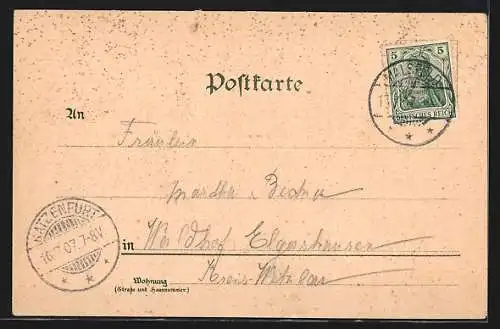 Postkarte
5 5
DEUTSCHES REICH
An
Fräulein
Martha
KATZENFURT
16. 7.07.7-8V
in Waldhof Elgershausen
Kreis Wetzlar
Wohnung
(Straße und Hausnummer)